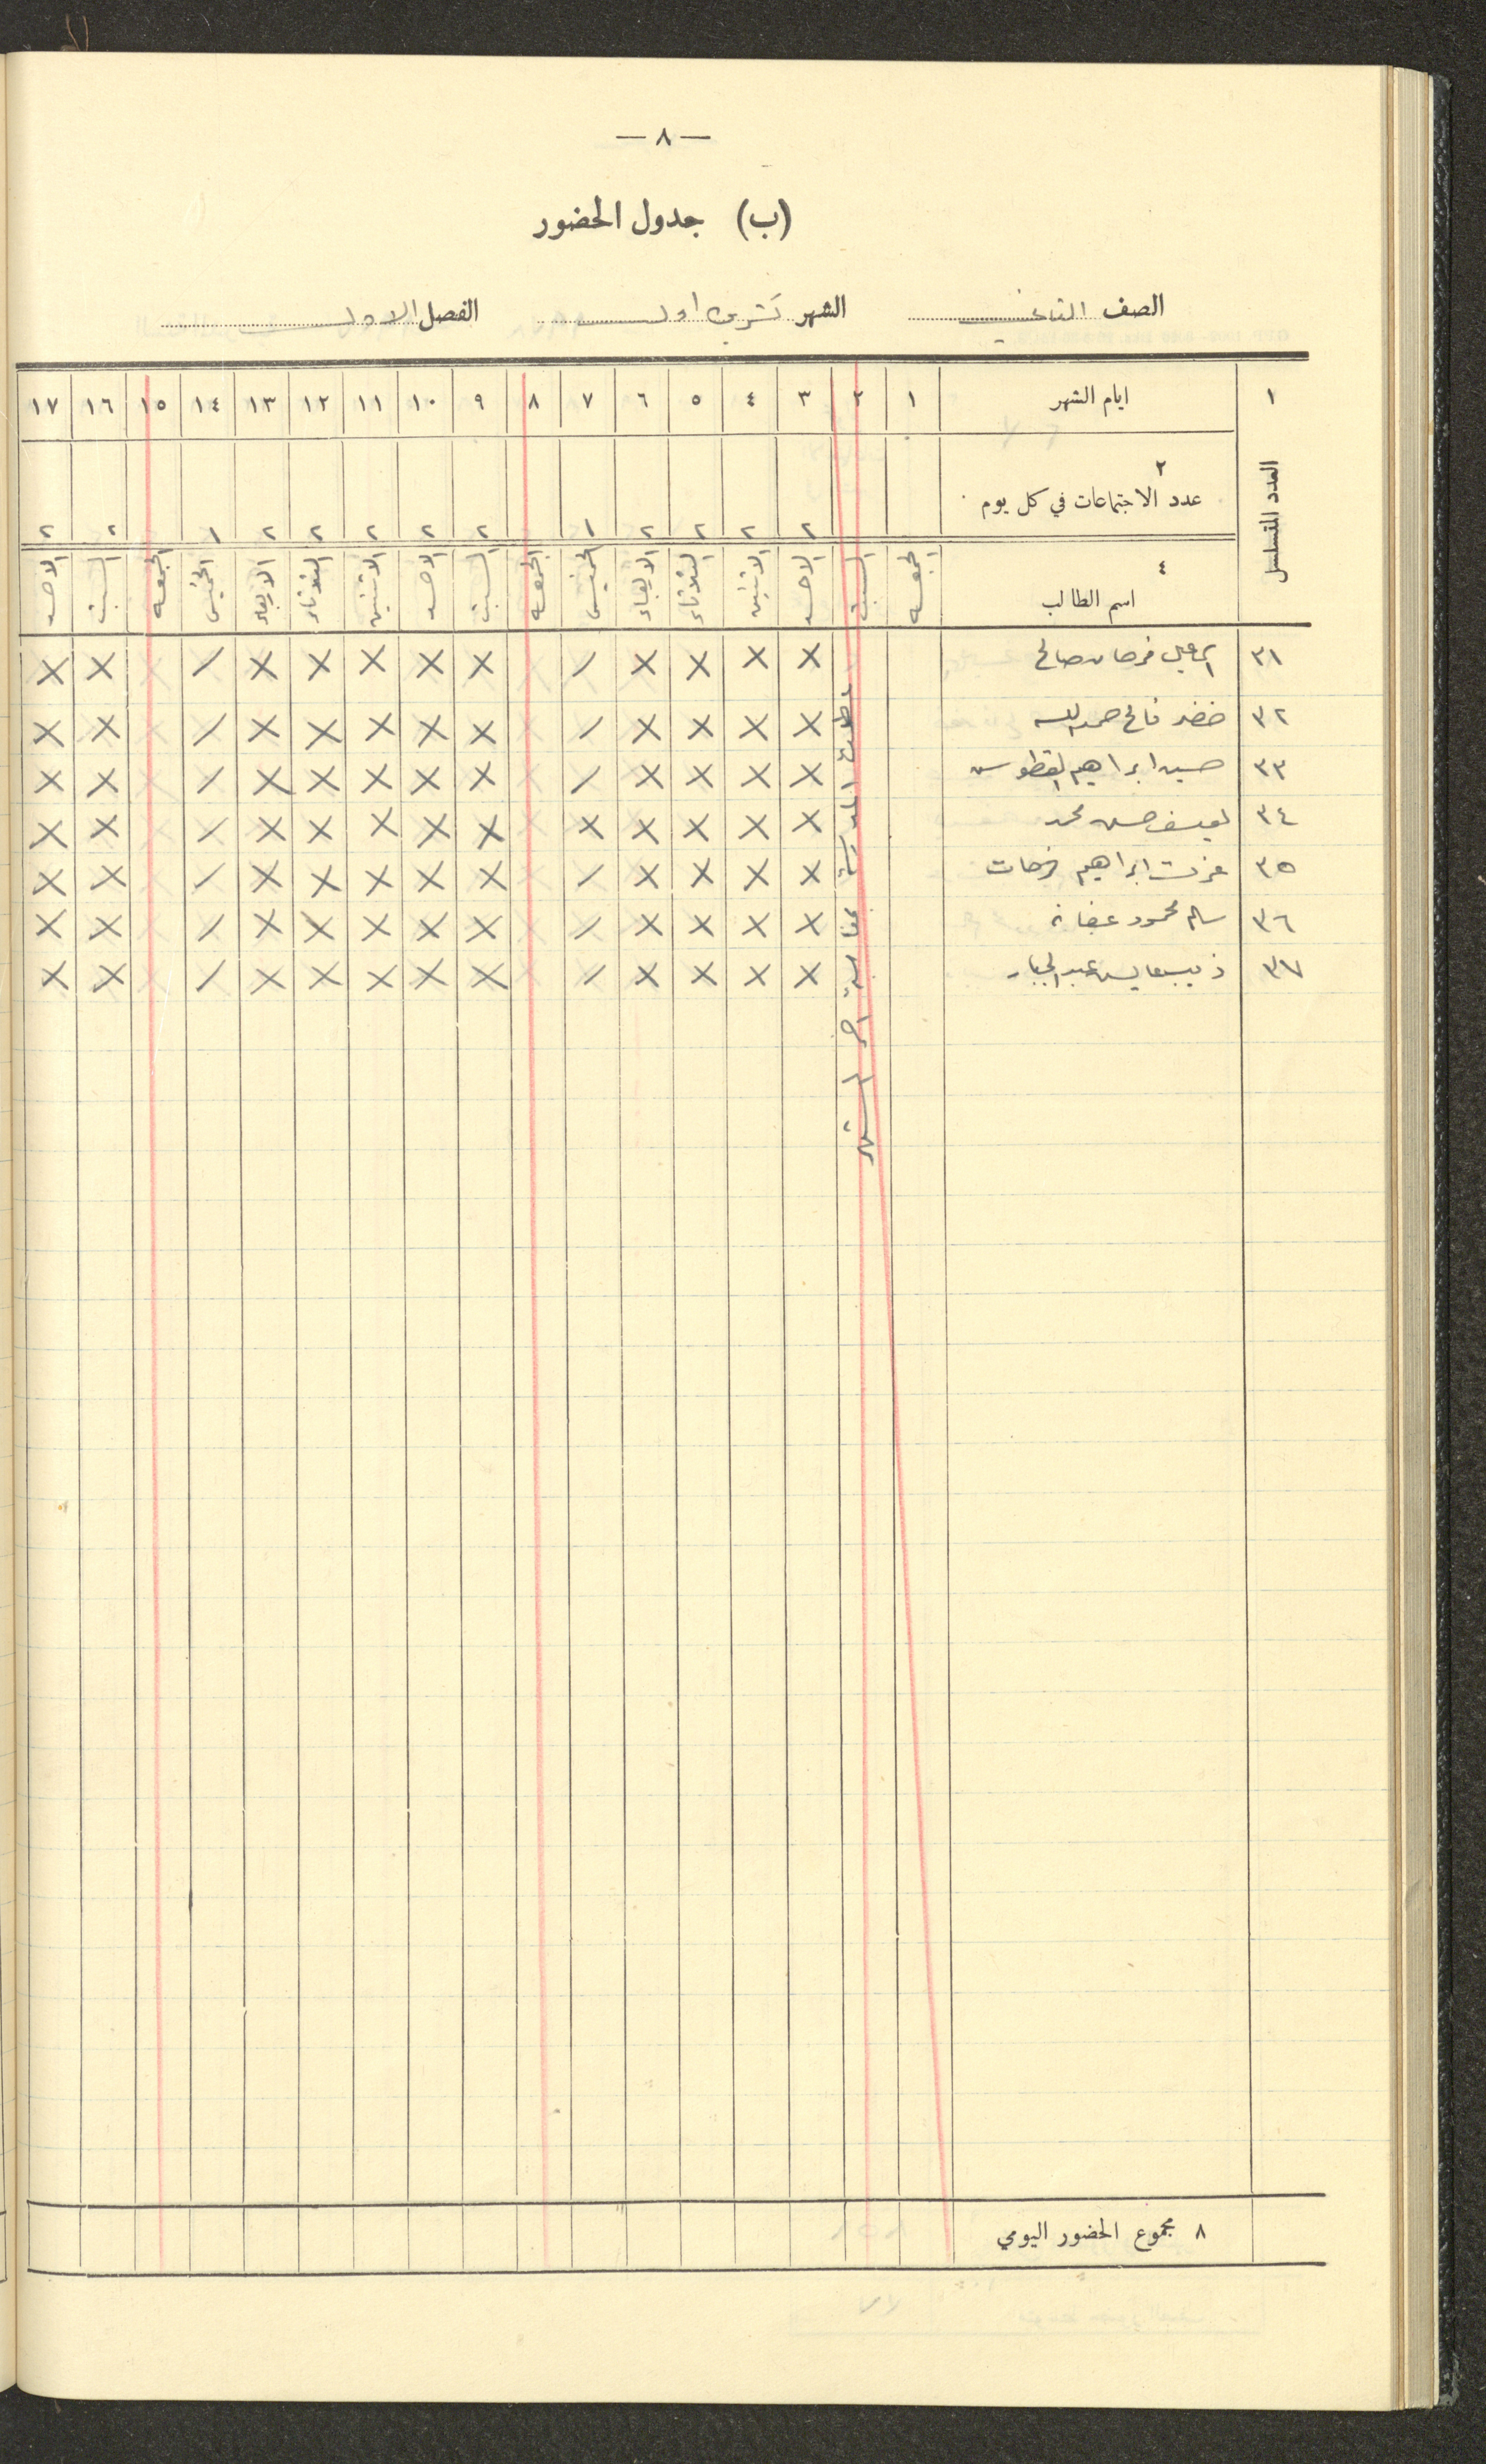 — ٨ —
(ب) جدول الحضور
الصف الثاني الشهر تشرين اول الفصل الاول
١ ايام الشهر ١ ٢ ٣ ٤ ٥ ٦ ٧ ٨ ٩ ١٠ ١١ ١٢ ١٣ ١٤ ١٥ ١٦ ١٧
العدد المتسلسل
٢
عدد الاجتماعات في كل يوم ٢ ٢ ٢ ٢ ١ ٢ ٢ ٢ ٢ ٢ ١ ٢ ٢
٤
اسم الطالب الجمعه السبت الاحد الاثنين الثلاثاء الاربعاء الخميس الجمعه السبت الاحد الاثنين الثلاثاء الاربعاء الخميس الجمعه السبت الاحد
٣١ فرحان صالح X X X X / X X X X X / X X
٣٢ خضر فالح حمدالله X X X X / X X X X X / X X
٣٣ حسين ابراهيم القطوس X X X X / X X X X X / X X
٣٤ حسن محمد X X X X X X X X X X / X X
٣٥ عزت ابراهيم فرحات X X X X / X X X X X / X X
٣٦ سالم محمود عفانه X X X X / X X X X X / X X
٣٧ ذيب عبد الجبار X X X X / X X X X X / X X
المدرسة
الشهر
٨ مجموع الحضور اليومي